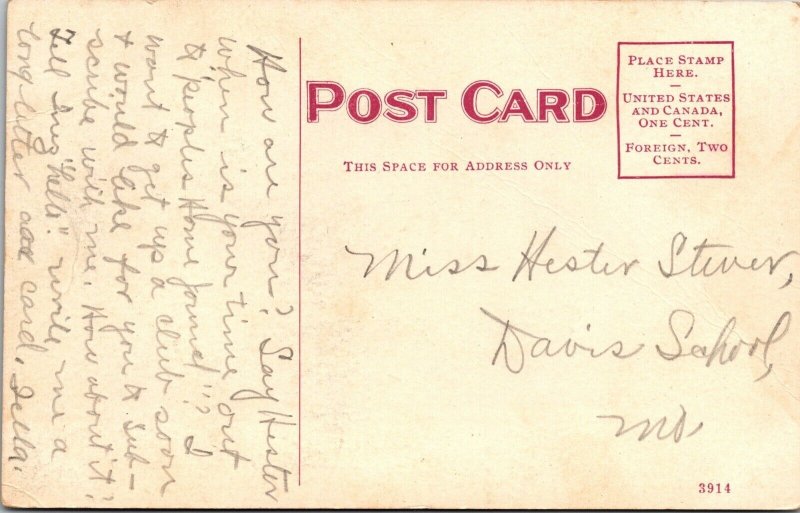 How are you? Say Hester
when is your time out
to "peoples Home Journal"? I
want to get up a club soon
& would like for you to sub-
scribe with me. How about it?
Tell Inez "hello." write me a
long letter card. Della.
POST CARD
THIS SPACE FOR ADDRESS ONLY
PLACE STAMP
HERE.
UNITED STATES
AND CANADA,
ONE CENT.
FOREIGN, TWO
CENTS.
Miss Hester Stever,
Davis School,
Mo.
3914